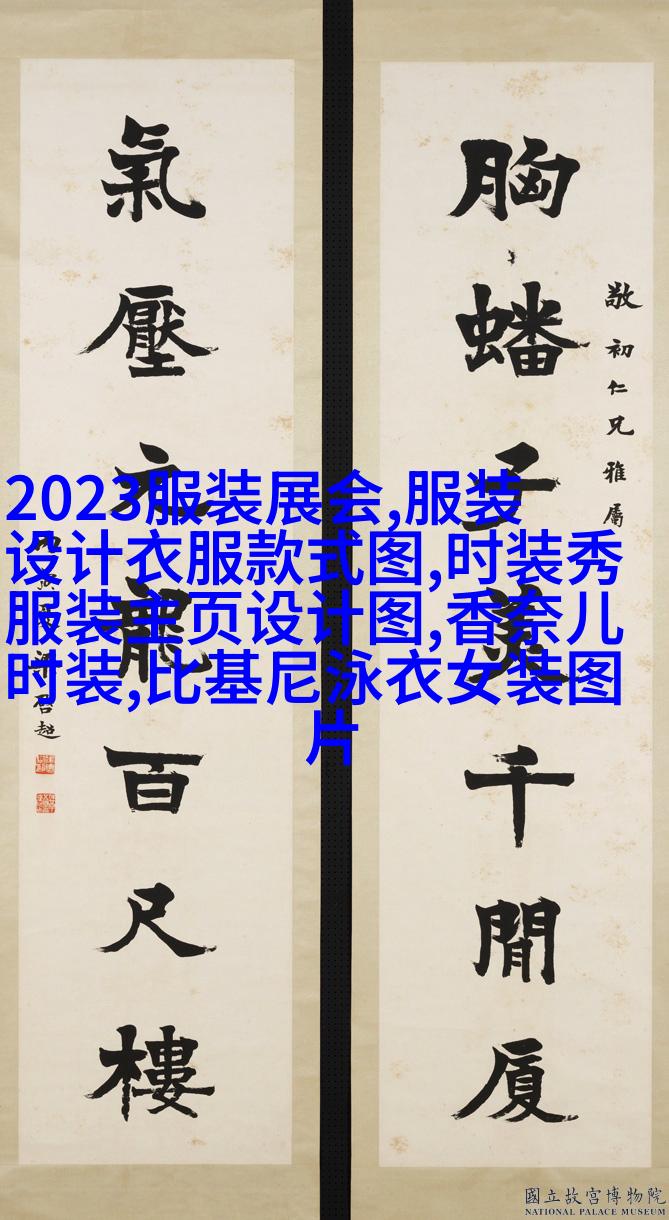 胸蟠子美千閒厦
敬初仁兄雅屬
氣壓元龍百尺樓
启超
2023服装展会,服装
设计衣服款式图,时装秀
服装主页设计图,香奈儿
时装,比基尼泳衣女装图
片
國立故宮博物院
NATIONAL PALACE MUSEUM